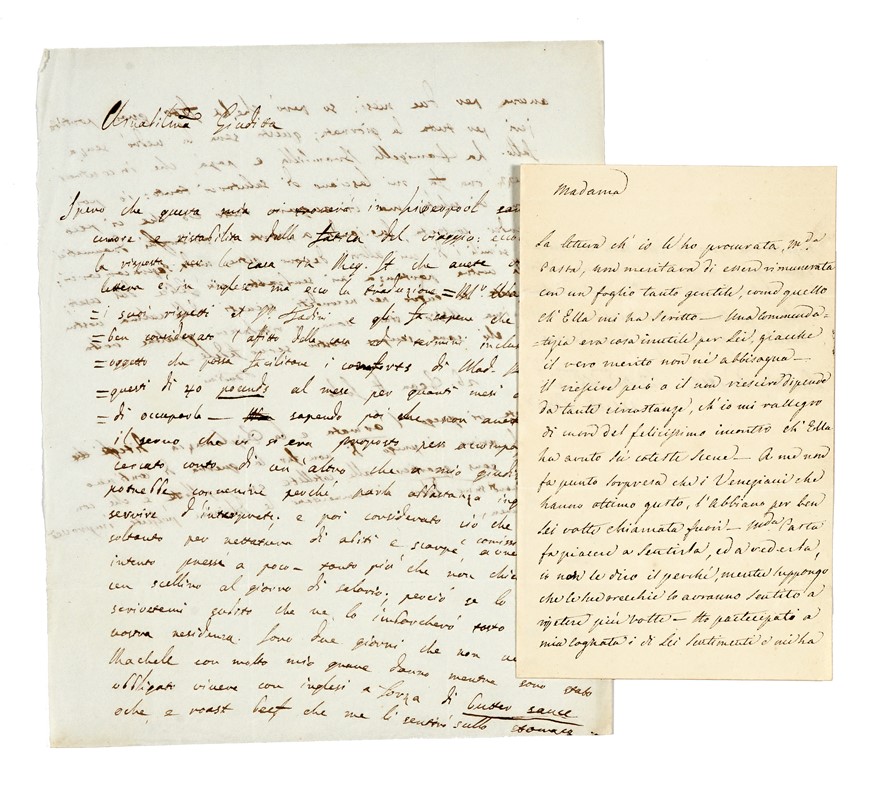 Amabilma Giudita
Spero che questa mia vi troverà in
umore e ristabilita dalla fatica del viaggio: ecco
la risposta per la casa in Reg. St che avete
lettera è in inglese ma ecco la traduzione =
= i suoi rispetti et Mr. Tadini e gli fa sapere che
= ben considerato l'afitto della casa ed i termini inclu
= oggetto che possa facilitare i comforts di Mad.
= questi di 40 pounds al mese per quanti mesi
= di occuparla — sapendo poi che non avete
il servo che vi s'era proposto per accompa
cercato conto di un'altro che a mio giudi
potrebbe convenire perché parla abbastanza ing
servire d'interprete: e poi considerato ciò che
soltanto per nettatura di abiti e scarpe
intento presso a poco — tanto più che non chie
un scellino al giorno di salario; perciò se lo
scrivetemi subito che ve lo imbarcherò tosto
vostra residenza. Sono due giorni che non ve
Rachele con molto mio grave danno mentre sono stato
obbligato vivere con inglesi a forza di butter sauce
oche, e roast beef che me li sentirò sullo stomaco
Madama
La lettera ch'io le ho procurata, Mda
Pasta, non meritava di essere rimunerata
con un foglio tanto gentile, come quello
ch'Ella mi ha scritto — Una Commenda-
-tizia era cosa inutile per Lei, giacche
il vero merito non nè abbisogna —
Il riescire però o il non riescire dipende
da tante circostanze, ch'io mi rallegro
di cuore del felicissimo incontro ch'Ella
ha avuto su coteste Scene — A me non
fa punto sorpresa che i Veneziani che
hanno ottimo gusto, l'abbiano per ben
sei volte chiamata fuori — Mda Pasta
fa piacere a sentirla, ed a vederla,
io non le dico il perché, mentre suppongo
che le sue orecchie lo avranno sentito a
ripetere più volte — Ho partecipato a
mia cognata i di Lei sentimenti e mi ha